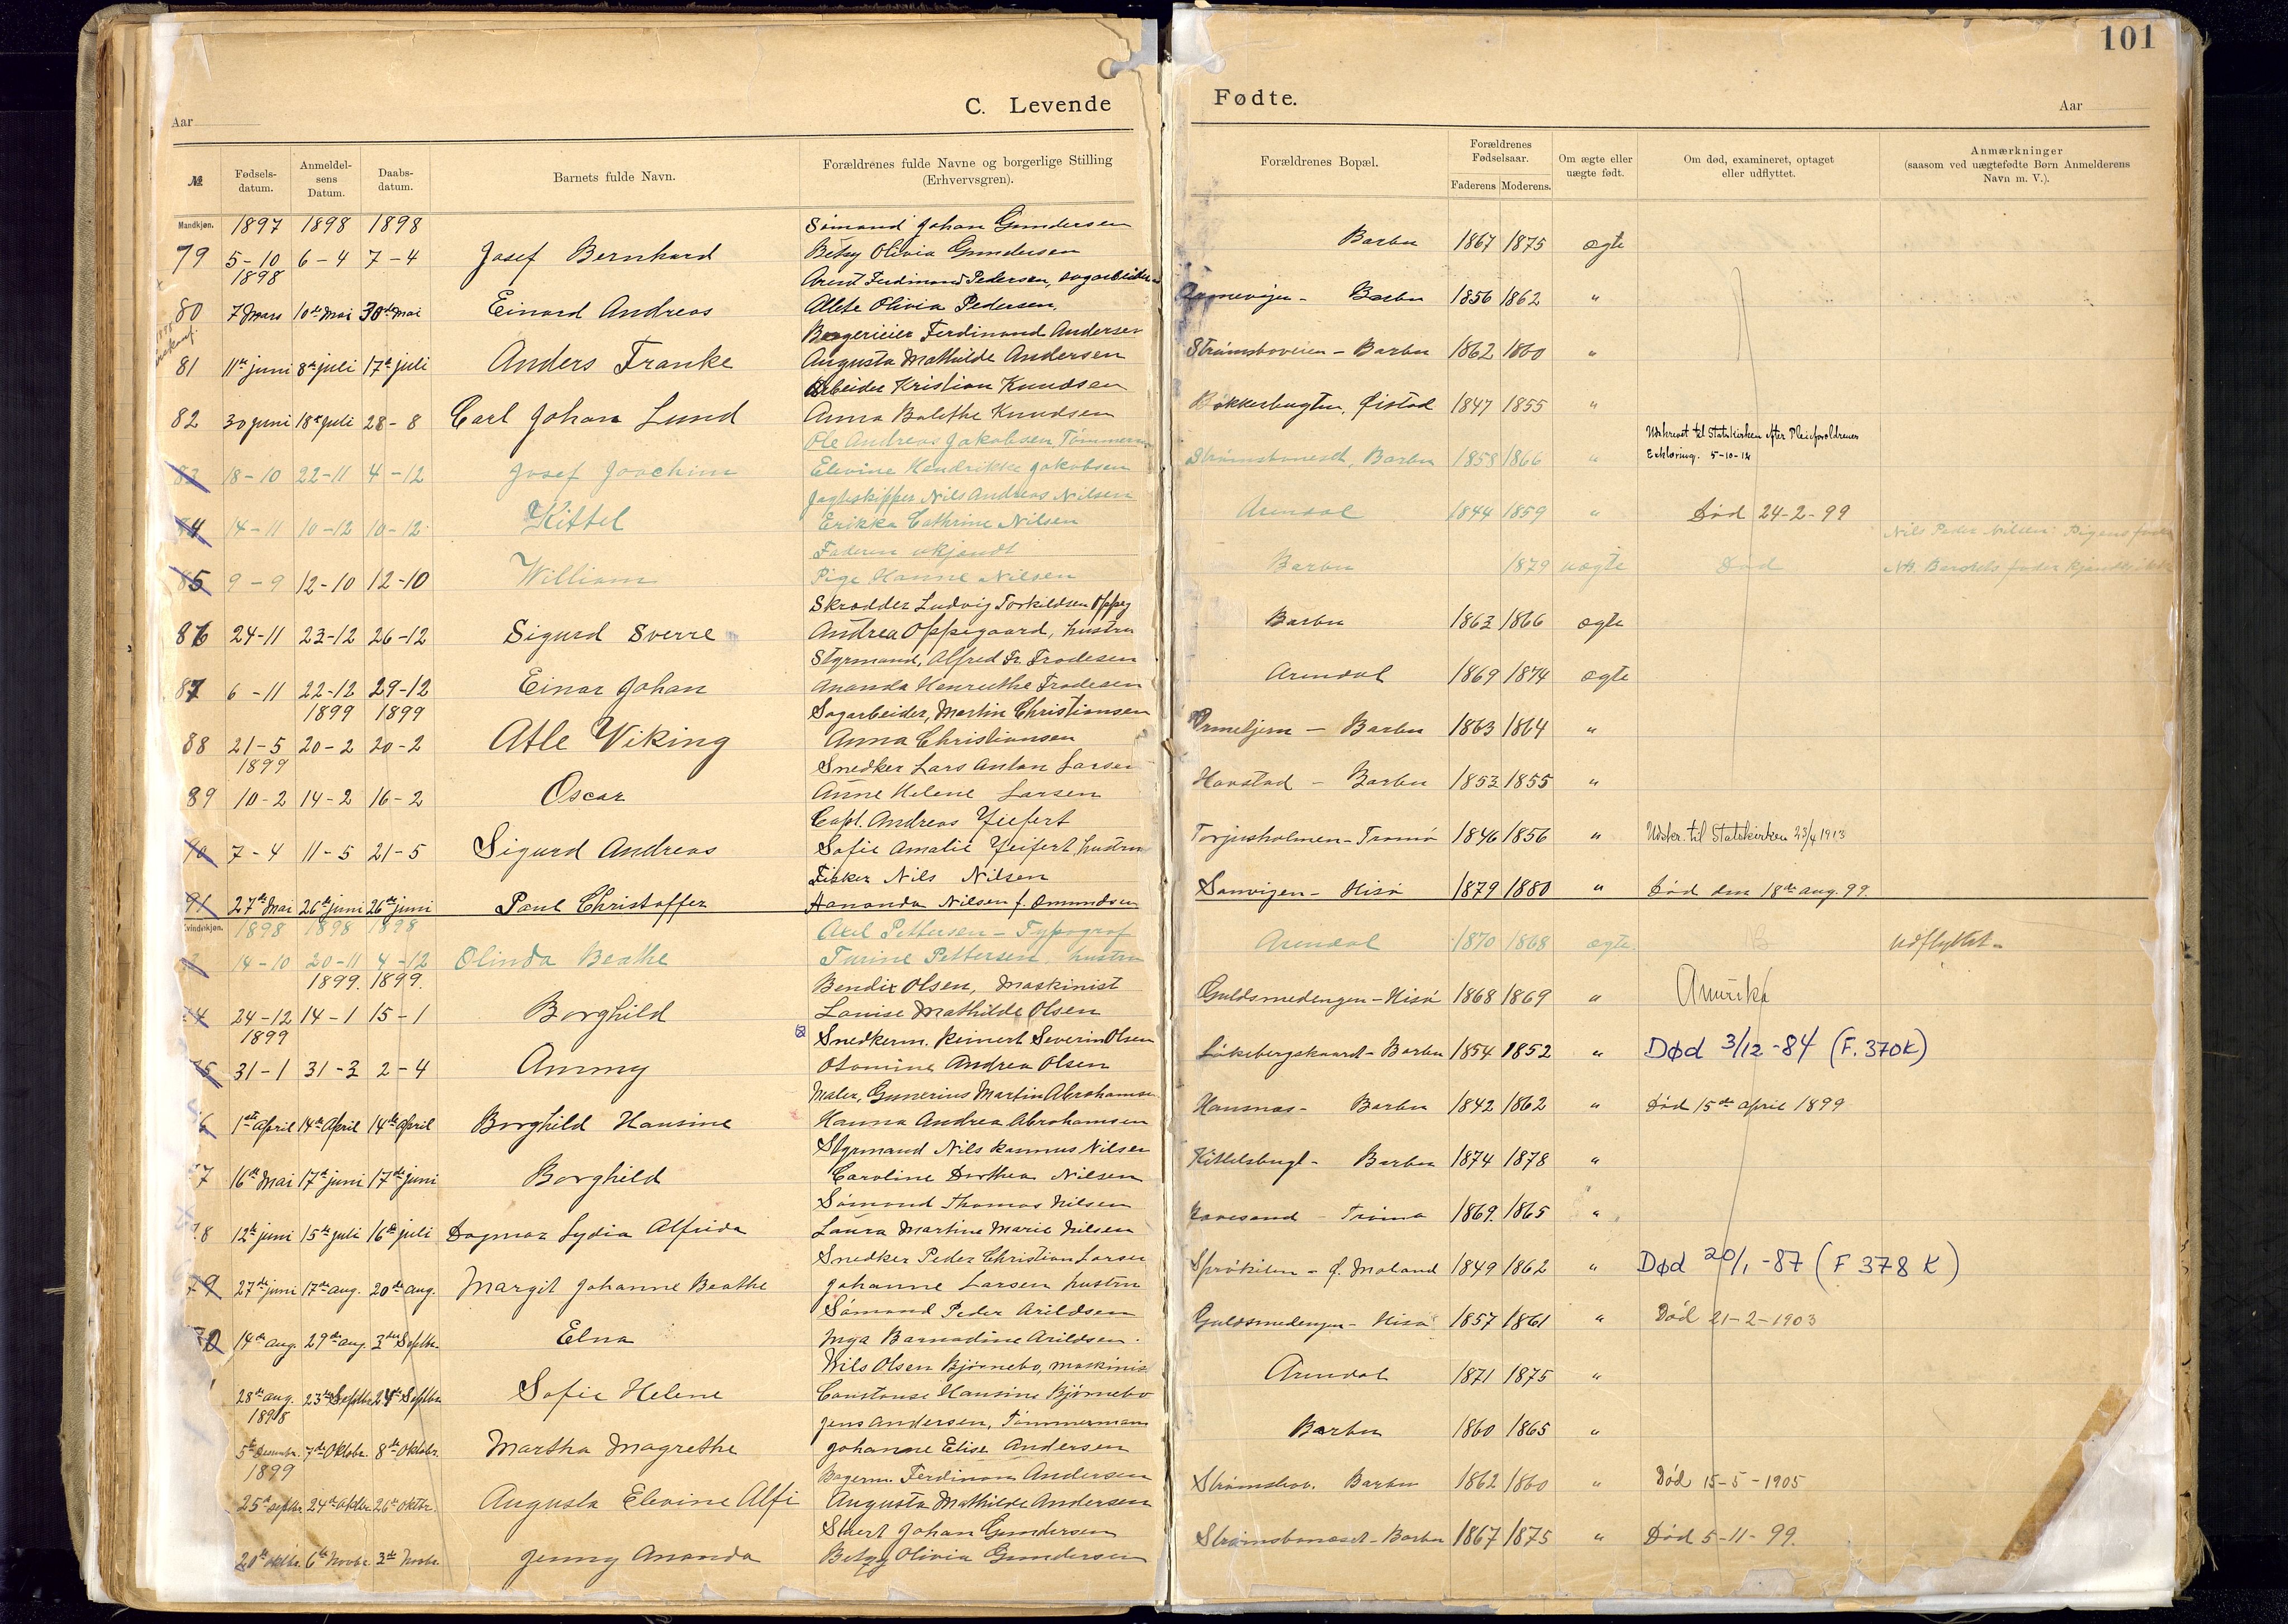 101
C. Levende Fødte.
Aar Aar
№ Fødsels-datum. Anmeldel-sens Datum. Daabs-datum. Barnets fulde Navn. Forældrenes fulde Navne og borgerlige Stilling (Erhvervsgren). Forældrenes Bopæl. Forældrenes Fødselsaar. Faderens Moderens. Om ægte eller uægte født. Om død, examineret, optaget eller udflyttet. Anmærkninger (saasom ved uægtefødte Børn Anmelderens Navn m. V.).
Mandkjøn. 1897 1898 1898 Sømand Johan Gundersen
79 5-10 6-4 7-4 Josef Bernhard Betsy Olivia Gundersen Barbu 1867 1875 ægte
1898 Arent Ferdinand Pedersen, sagarbeider
80 7 Mars 10de Mai 30de Mai Einard Andreas Allete Olivia Pedersen. Barbu 1856 1862 "
Bageri Ferdinand Andersen
81 11te juni 8de juli 17de juli Anders Franke Augusta Mathilde Andersen Strømsboveien - Barbu 1862 1860 "
Arbeider Kristian Knudsen
82 30 juni 18de juli 28-8 Carl Johan Lund Anna Bolethe Knudsen Øistad 1847 1855 "
Ole Andreas Jakobsen Tømmerm
83 18-10 22-11 4-12 Josef Joachim Elevine Hendrikke Jakobsen Strømsboneset, Barbu 1858 1866 " Udskrevet til Statskirken efter Pleieforældrenes Erklæring. 5-10-12
Jagtskipper Nils Andreas Nilsen
84 14-11 10-12 10-12 Kittel Erikka Cathrine Nilsen Arendal 1844 1859 " Død 24-2-99
Faderen ukjendt Nils Peder Nilsen Pigens fader
85 9-9 12-10 12-10 William Pige Hanne Nilsen Barbu 1879 uægte Død NB. Barnets fader
Skrædder Ludvig Torkildsen Oppeg
86 24-11 23-12 26-12 Sigurd Sverre Andrea Oppegaard, hustru Barbu 1863 1866 ægte
Styrmand, Alfred Fr. Frodesen
87 6-11 22-12 29-12 Einar Johan Ananda Henriethe Frodesen Arendal 1869 1874 ægte
1899 1899 Sagarbeider, Martin Christiansen
88 21-5 20-2 20-2 Atle Viking Anna Christiansen Barbu 1863 1864 "
1899 Snedker Lars Anton Larsen
89 10-2 14-2 16-2 Oscar Anne Helene Larsen Havstad - Barbu 1853 1855 "
Capt. Andreas Feifert
90 7-4 11-5 21-5 Sigurd Andreas Sofie Amalie Feifert, hustru Torjusholmen - Tromø 1846 1856 " Udskr. til Statskirken 23/4 1913
Fisker Nils Nilsen
91 27de Mai 26de juni 26de juni Paul Christoffer Aananda Nilsen f. Omundsen Sanvigen - Hisø 1879 1880 " Død den 18de aug. 99.
Kvindekjøn. 1898 1898 1898 Axel Pettersen - Typograf
14-10 20-11 4-12 Olinda Beathe Turine Pettersen, hustru Arendal 1870 1868 ægte udflyttet.
1899. 1899. Bendix Olsen, Maskinist
4 24-12 14-1 15-1 Borghild Louise Mathilde Olsen Guldsmedengen - Hisø 1868 1869 " Amerika
1899 Snedkerm. Reinert Severin Olsen
5 31-1 31-3 2-4 Ammy Otomine Andrea Olsen Barbu 1854 1852 " Død 3/12-84 (F. 370K)
Maler, Gunerius Martin Abrahamsen
6 1ste April 14de April 14de April Borghild Hansine Hanna Andrea Abrahamsen Hansnæs - Barbu 1842 1862 " Død 15de April 1899
Styrmand Nils Rasmus Nilsen
7 16de Mai 17de juni 17de juni Borghild Caroline Dorthea Nilsen Kittelsbugt - Barbu 1874 1878 "
Sømand Thomas Nilsen
8 12te juni 15de juli 16de juli Dagmar Lydia Alfrida Laura Martine Marie Nilsen Tromø 1869. 1865 "
Snedker Peder Christian Larsen
79 27de juni 17de aug. 20de aug. Margit Johanne Beathe Johanne Larsen hustru Ø. Moland 1849 1862 " Død 20/1-87 (F 378 K)
Sømand Peder Arildsen
14de aug. 29de aug. 3die Septbr. Elna Inga Barnadine Arildsen. Guldsmedengen - Hisø 1857 1861 " Død 21-2-1903
Nils Olsen Bjørnebo, maskinis
28de aug. 23de Septbr 24de Septbr Sofie Helene Constanse Hansine Bjørnebo Arendal 1871 1875 "
1898 Jens Andersen, Tømmermann
5te Desembr. 7de Oktobr. 8de Oktobr. Martha Magrethe Johanne Elise Andersen Barbu 1860 1865 "
1899 Bagerm. Ferdinan Andersen
25de Septbr. 24de Oktbr 26de Oktbr. Augusta Elevine Alfi Augusta Mathilde Andersen Strømsbov. Barbu 1862 1860 " Død 15-5-1905
Johan Gundersen
20de Oktbr. 6te Novbr 3de Novbr. Jenny Ananda Betzy Olivia Gundersen Strømsboneset - Barbu 1867 1875 " Død 5-11-99.